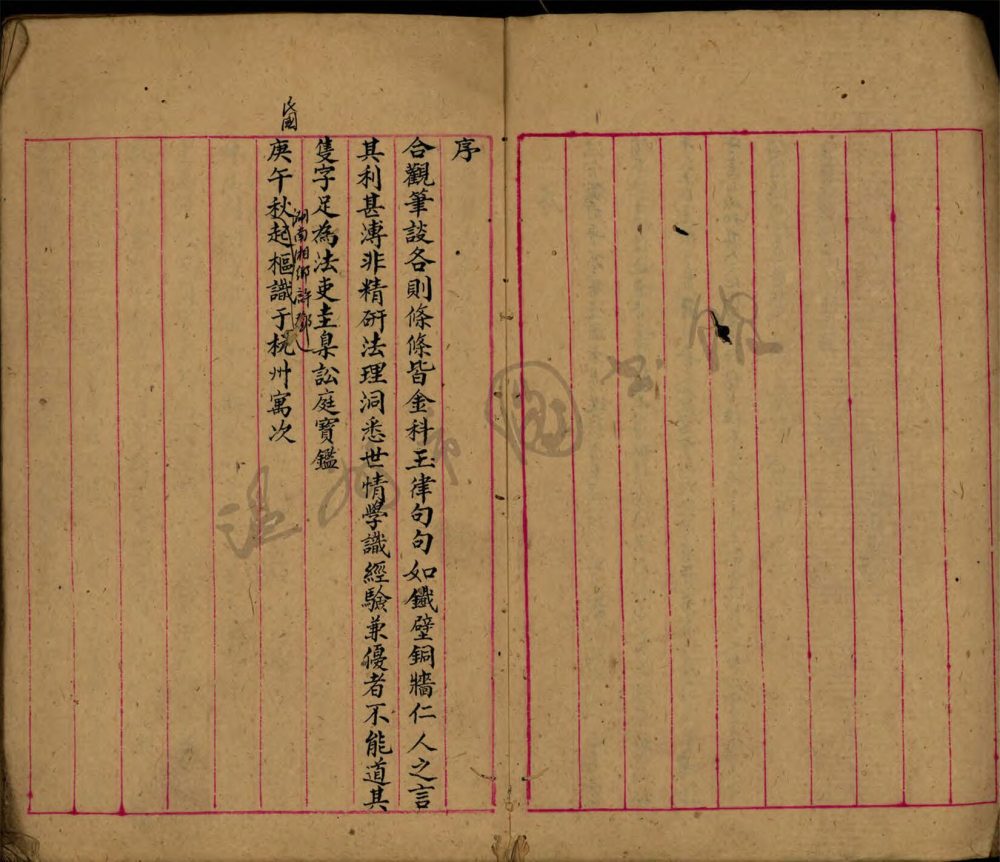 序
合觀筆談各則條條皆金科玉律句句如鐵壁銅牆仁人之言
其利甚溥非精研法理洞悉世情學識經驗兼優者不能道其
隻字足為法吏圭臬訟庭寶鑑
民國
庚午秋起樞識于杭州寓次
湖南湘鄉許鄧
溫州市圖書館